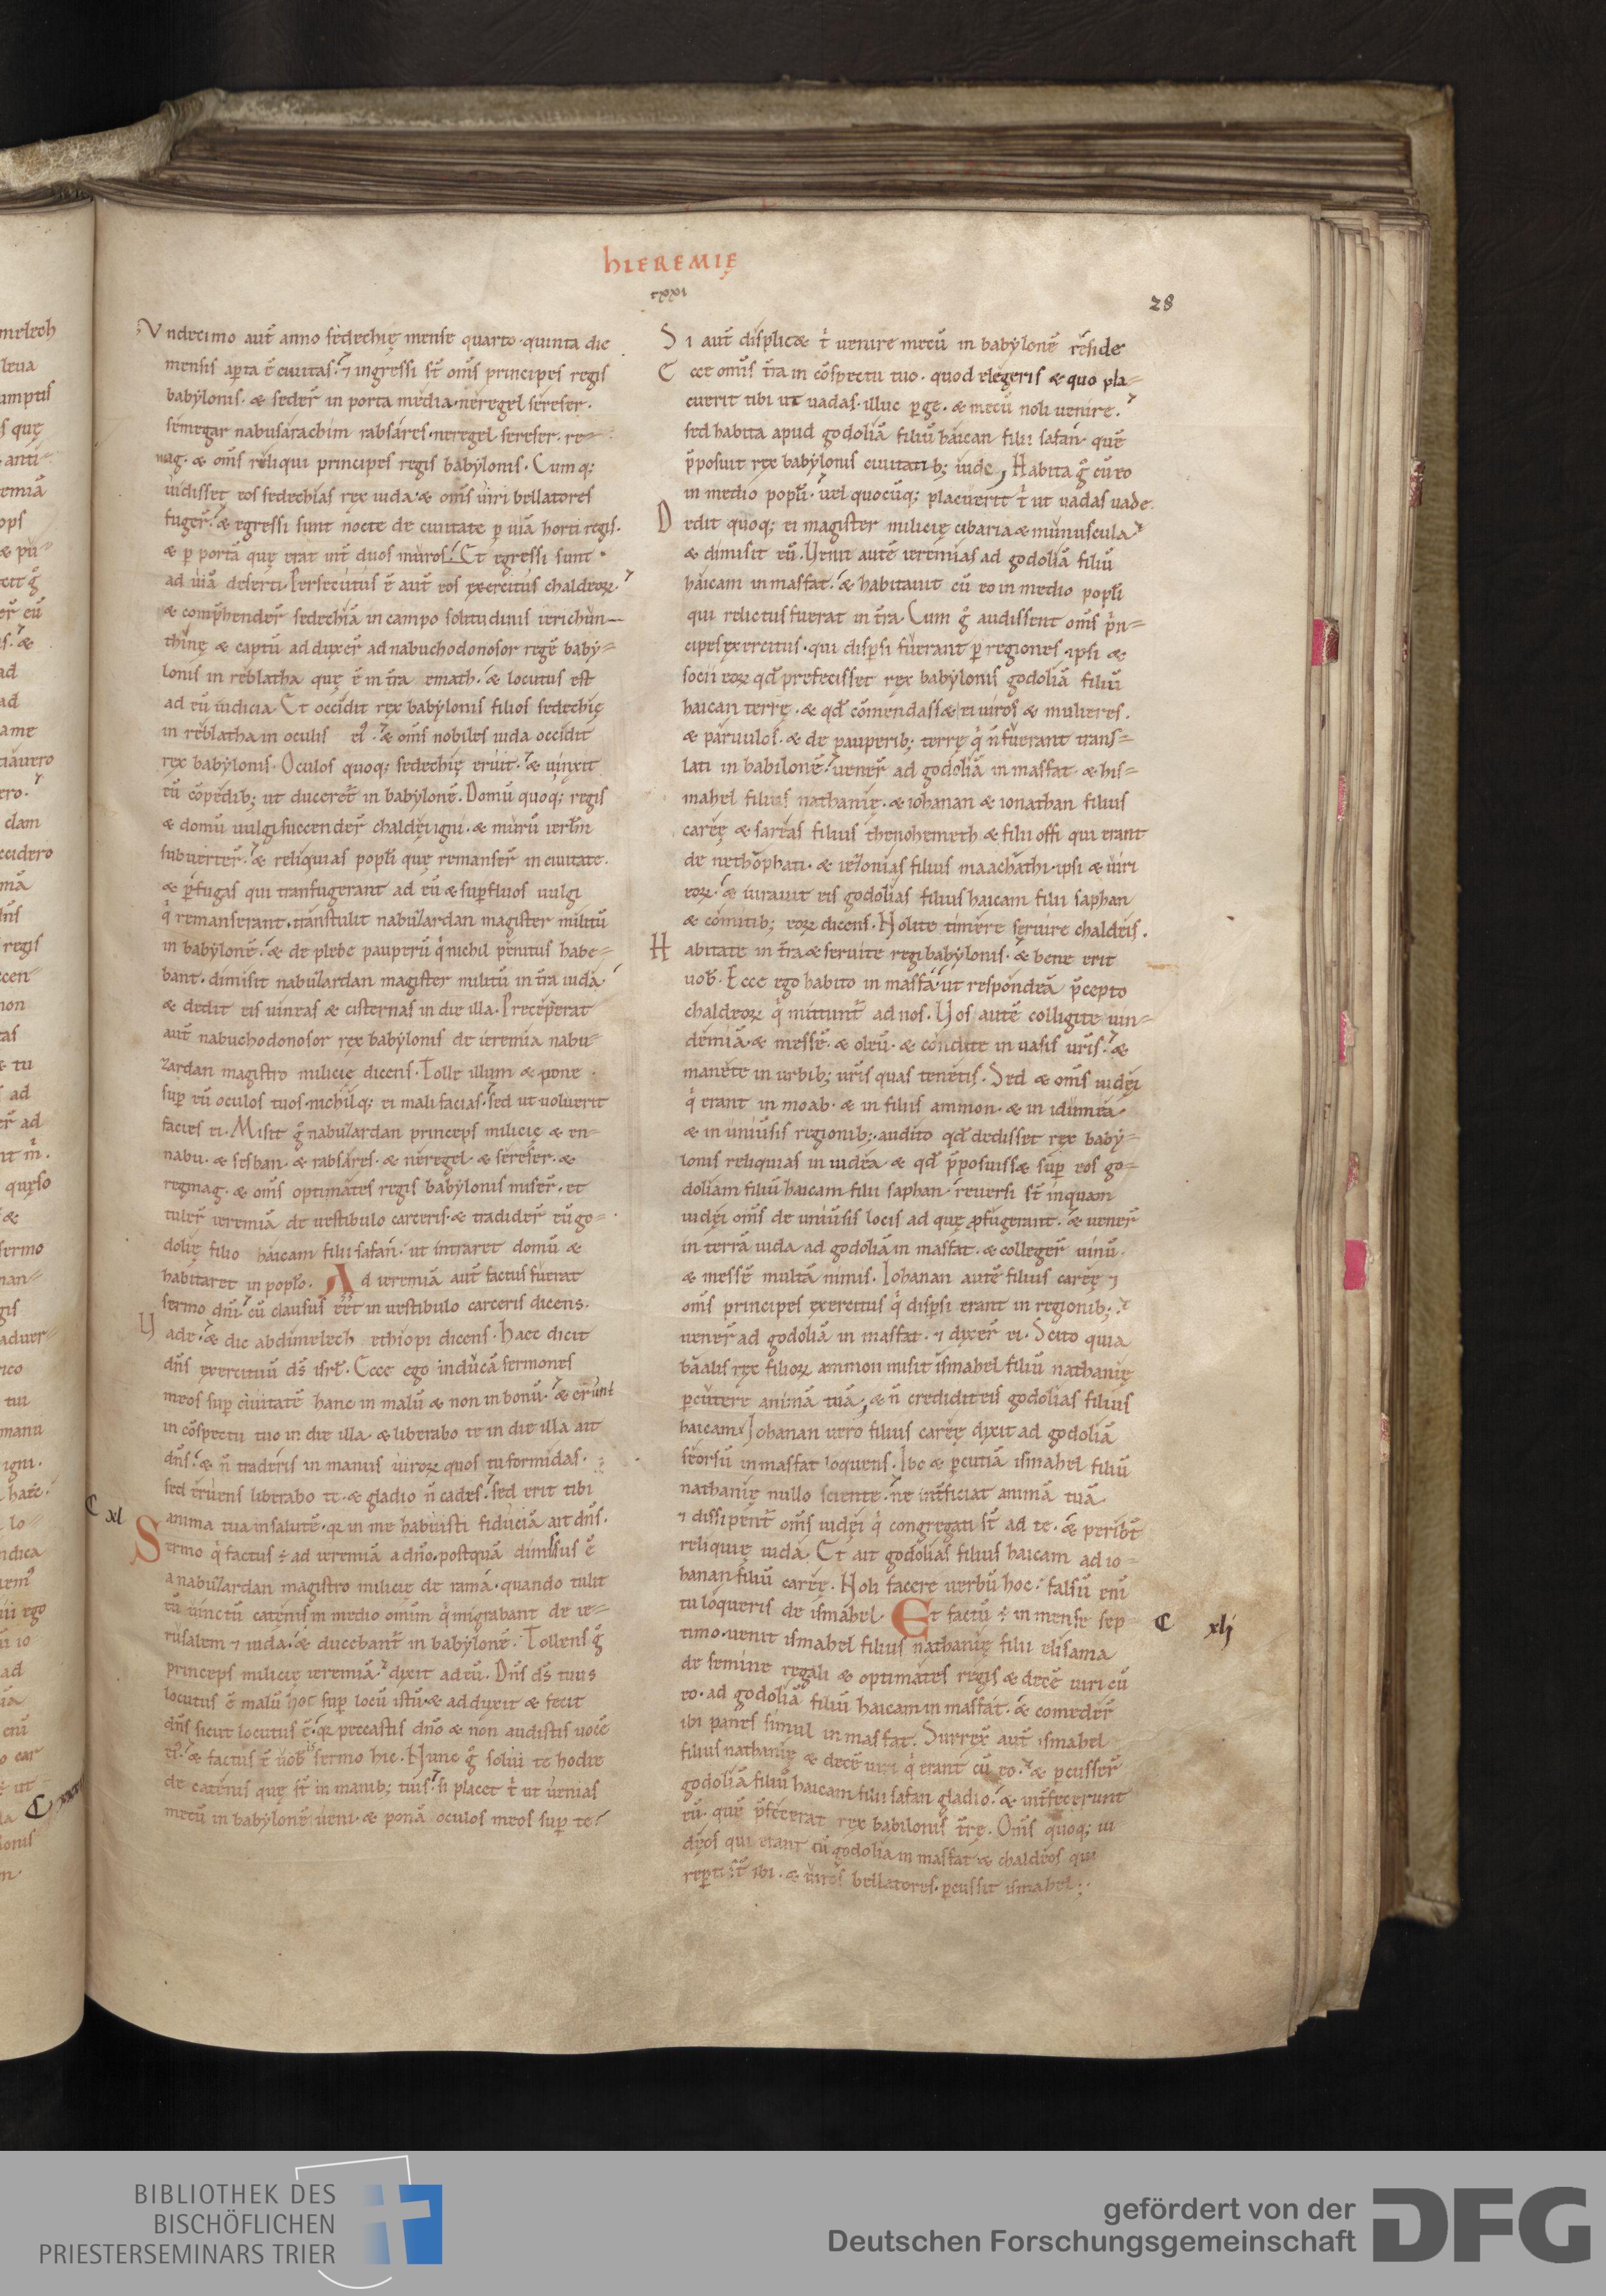 hIEREMIĘ
cxxi
28
Vndecimo aut̄ anno sedechię mense quarto. quinta die
mensis aꝑta ē ciuitas. ⁊ ingressi st̄ om̄s principes regis
babylonis. & seder̄ in porta media. neregel sereser.
semegar nabusarachim rabsares. neregel sereser. re-
mag. & om̄s reliqui principes regis babylonis. Cumq;
uidisset eos sedechias rex iuda. & om̄s uiri bellatores
fuger̄. & egressi sunt nocte de ciuitate ꝑ uiā horti regis.
& ꝑ portā quę erat int̄ duos muros. Et egressi sunt
ad uiā deserti. Persecutus ē aut̄ eos exercitus chaldeoꝝ.
& comp̄hender̄ sedechiā in campo solitudinis ierichun-
thinę & captū adduxer̄ ad nabuchodonosor regē baby-
lonis in reblatha quę ē in t̄ra emath. & locutus est
ad eū iudicia. Et occidit rex babylonis filios sedechię
in reblatha in oculis ei᷒. & om̄s nobiles iuda occidit
rex babylonis. Oculos quoq; sedechię eruit. & uinxit
eū cōpedib; ut duceret̄ in babylonē. Domū quoq; regis
& domū uulgi succender̄ chaldęi igni. & murū ierl̄m
subuerter̄. & reliquias popl̄i quę remanser̄ in ciuitate.
& ꝑfugas qui transfugerant ad eū & suꝑfluos uulgi
qͥ remanserant. transtulit nabuzardan magister militū
in babylonē. & de plebe pauperū qͥ nichil penitus habe-
bant. dimisit nabuzardan magister militū in t̄ra iuda
& dedit eis uineas & cisternas in die illa. Preceperat
aut̄ nabuchodonosor rex babylonis de ieremia nabu-
zardan magistro milicię dicens. Tolle illum & pone
suꝑ eū oculos tuos. nichilq; ei mali facias. sed ut uoluerit
facies ei. Misit g̊ nabuzardan princeps milicię & en-
nabu. & sesban. & rabsares. & neregel. & sereser. &
regmag. & om̄s optimates regis babylonis miser̄. et
tuler̄ ieremiā de uestibulo carceris. & tradider̄ eū go-
dolię filio haicam filii safan. ut intraret domū &
habitaret in popl̄o. Ad ieremiā aut̄ factus fuerat
sermo dn̄i. cū clausus eēt in uestibulo carceris dicens.
Vade. & dic abdimelech ethiopi dicens. Haec dicit
dn̄s exercituū ds̄ isrl̄. Ecce ego inducā sermones
meos suꝑ ciuitatē hanc in malū & non in bonū. & erunt
in cōspectu tuo in die illa. & liberabo te in die illa ait
dn̄s. & n̄ traderis in manus uiroꝝ quos tu formidas.
sed eruens liberabo te. & gladio n̄ cades. sed erit tibi
anima tua in salutē. qr in me habuisti fiduciā ait dn̄s.
C xl
Sermo qͥ factus ÷ ad ieremiā a dn̄o. postquā dimissus ē
a nabuzardan magistro milicię de rama. quando tulit
eū uinctū catenis in medio omiūm qͥ migrabant de ie-
rusalem ⁊ iuda. & ducebant̄ in babylonē. Tollens g̊
princeps milicię ieremiā. dixit ad eū. Dn̄s ds̄ tuus
locutus ē malū hoc suꝑ locū istū. & adduxit & fecit
dn̄s sicut locutus ē. qr peccastis dn̄o & non audistis uocē
ei᷒. & factus ē uob̄ sermo hic. Nunc g̊ solui te hodie
de catenis quę st̄ in manib; tuis. si placet tͥ ut uenias
mecū in babylonē ueni. & ponā oculos meos suꝑ te.
Si aut̄ displic& tͥ uenire mecū in babylonē reside
Ecce om̄s t̄ra in cōspectu tuo. quod elegeris & quo pla-
cuerit tibi ut uadas. illuc ꝑge. & mecū noli uenire.
sed habita apud godoliā filiū haican filii safan. quē
p̄posuit rex babylonis ciuitatib; iudę, Habita g̊ cū eo
in medio popl̄i. uel quocūq; placuerit tͥ ut uadas uade.
Dedit quoq; ei magister milicię cibaria & munuscula
& dimisit eū. Venit autē ieremias ad godoliā filiū
haicam in masfat. & habitauit cū eo in medio popl̄i
qui relictus fuerat in t̄ra. Cum g̊ audissent om̄s pͥn-
cipes exercitus. qui disꝑsi fuerant ꝑ regiones. ipsi &
socii eoꝝ qd̄ prefecisset rex babylonis godoliā filiū
haican terrę. & qd̄ cōmendass& ei uiros & mulieres.
& paruulos. & de pauperib; terrę qͥ n̄ fuerant trans-
lati in babilonē. uener̄ ad godoliā in masfat. & his-
mahel filius nathanię. & iohanan & ionathan filius
careę & sareas filius thenohemeth & filii offi qui erant
de nethophati. & iezonias filius maachathi. ipsi & uiri
eoꝝ. & iurauit eis godolias filius haicam filii saphan
& comitib; eoꝝ dicens. Nolite timere seruire chaldeis.
Habitate in t̄ra & seruite regi babylonis. & bene erit
uob̄. Ecce ego habito in masfa. ut respondeā p̄cepto
chaldeoꝝ qͥ mittunt̄ ad nos. Vos autē colligite uin-
demiā. & messē. & oleū. & condite in uasis ur̄is. &
manete in urbib; ur̄is quas tenetis. Sed & om̄s iudęi
qͥ erant in moab. & in filiis ammon. & in idumea.
& in uniūsis regionib;. audito qd̄ dedisset rex baby-
lonis reliquias in iudea & qd̄ p̄posuiss& suꝑ eos go-
doliam filiū haicam filii saphan. reuersi st̄ inquam
iudęi om̄s de uniūsis locis ad quę ꝓfugerant. & uener̄
in terrā iuda ad godoliā in masfat. & colleger̄ uinū.
& messē multā nimis. Iohanan autē filius careę ⁊
om̄s principes exercitus qͥ disꝑsi erant in regionib;.
uener̄ ad godoliā in masfat. ⁊ dixer̄ ei. Scito quia
baalis rex filioꝝ ammon misit ismahel filiū nathanię
ꝑcutere animā tuā, & n̄ credidit eis godolias filius
haicam. Iohanan uero filius careę dixit ad godoliā
seorsū in masfat loquens. Ibo & ꝑcutiā ismahel filiū
nathanię nullo sciente. ne int̄ficiat animā tuā
⁊ dissipent̄ om̄s iudęi qͥ congregati st̄ ad te. & peribt̄
reliquię iuda. Et ait godolias filius haicam ad io-
hanan filiū careę. Noli facere uerbū hoc. falsū eni
tu loqueris de ismahel. Et factū ÷ in mense sep-
C xlj
timo. uenit ismahel filius nathanię filii elisama
de semine regali & optimates regis & decē uiri cū
eo. ad godoliā filiū haicam in masfat. & comeder̄
ibi panes simul in masfat. Surrex̄ aut̄ ismahel
filius nathanię & decē uiri qͥ erant cū eo. & ꝑcusser̄
godoliā filiū haicam filii safan gladio. & int̄fecerunt
eū. quē p̄fecerat rex babilonis t̄re. Om̄s quoq; iu
dęos qui erant cū godolia in masfat & chaldeos qui
reꝑti st̄ ibi. & uiros bellatores. ꝑcussit ismahel;.
BIBLIOTHEK DES
BISCHÖFLICHEN
PRIESTERSEMINARS TRIER
gefördert von der
Deutschen Forschungsgemeinschaft
DFG